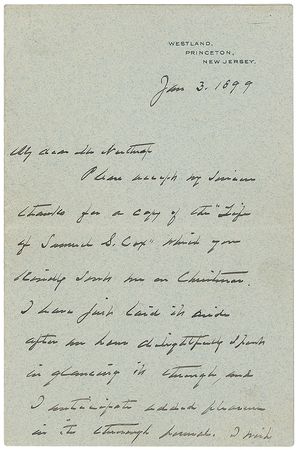 WESTLAND,
PRINCETON,
NEW JERSEY.
Jan 3. 1899
My dear Mr Northrop
Please accept my sincere
thanks for a copy of the "Life
of Samuel S. Cox" which you
kindly sent me on Christmas.
I have just laid it aside
after an hour delightfully spent
in glancing it through, and
I anticipate added pleasure
in its thorough perusal. I wish